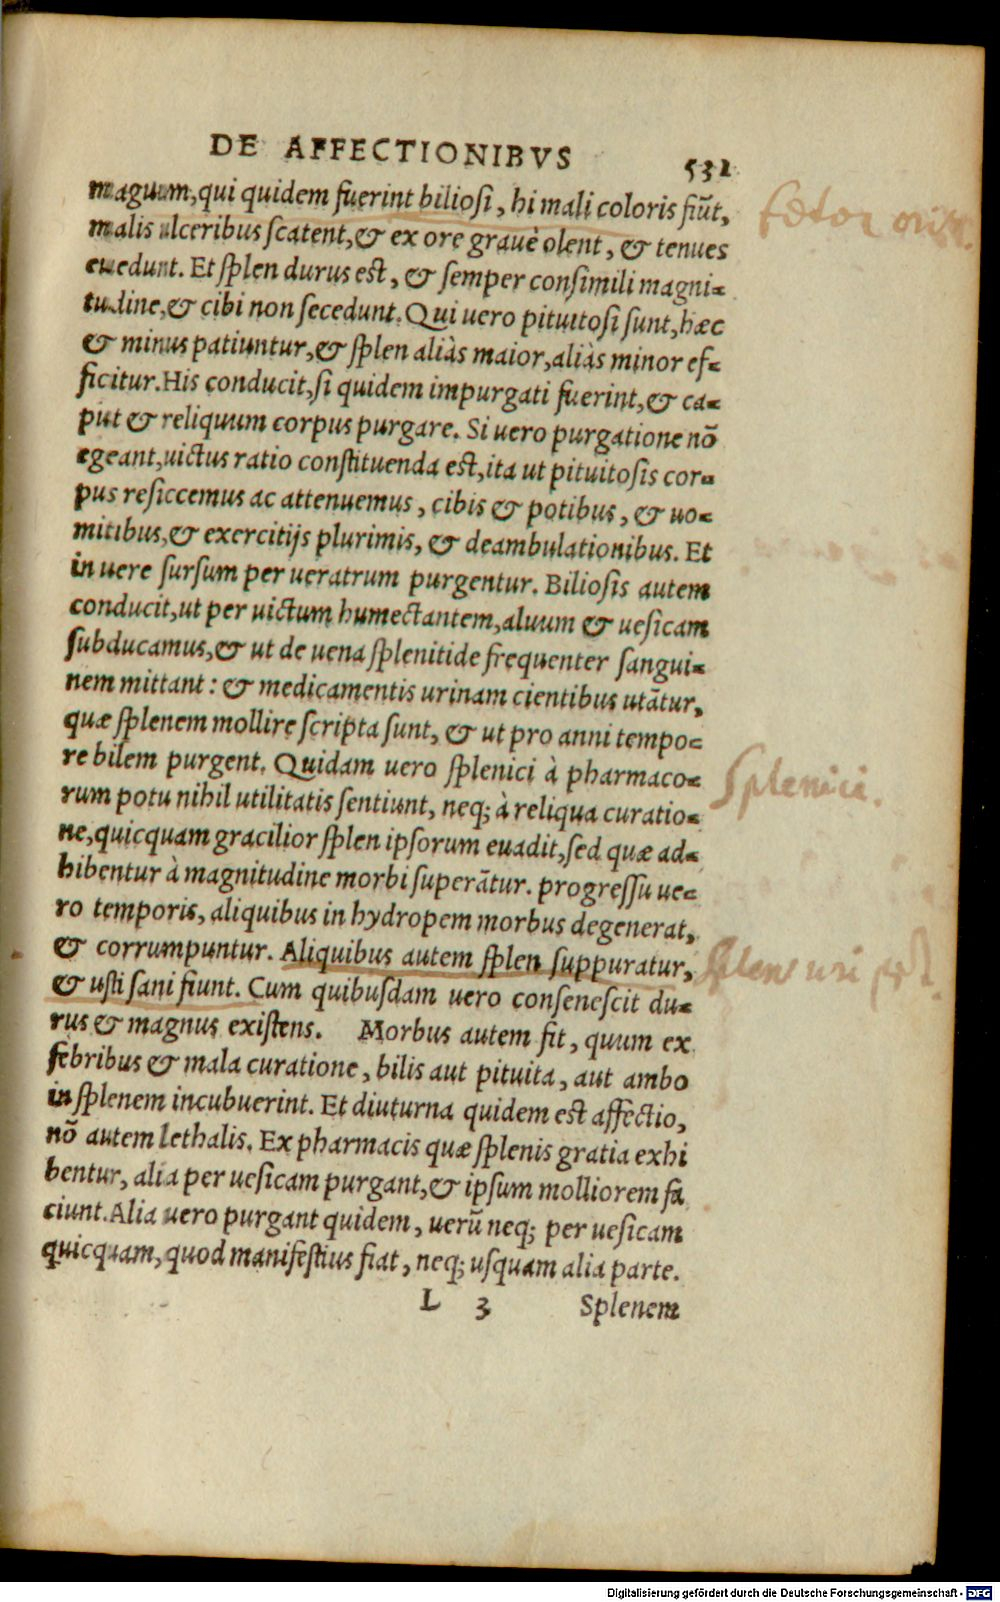 DE AFFECTIONIBVS 531
magnum, qui quidem fuerint biliosi, hi mali coloris fiūt,
malis ulceribus scatent, & ex ore grauè olent, & tenues
euedunt. Et splen durus est, & semper consimili magni-
tudine, & cibi non secedunt. Qui uero pituitosi sunt, hæc
& minus patiuntur, & splen aliàs maior, aliàs minor ef-
ficitur. His conducit, si quidem impurgati fuerint, & ca-
put & reliquum corpus purgare. Si uero purgatione nō
egeant, uictus ratio constituenda est, ita ut pituitosis cor-
pus resiccemus ac attenuemus, cibis & potibus, & uo-
mitibus, & exercitijs plurimis, & deambulationibus. Et
in uere sursum per ueratrum purgentur. Biliosis autem
conducit, ut per uictum humectantem, aluum & uesicam
subducamus, & ut de uena splenitide frequenter sangui-
nem mittant: & medicamentis urinam cientibus utātur,
quæ splenem mollire scripta sunt, & ut pro anni tempo-
re bilem purgent. Quidam uero splenici à pharmaco-
rum potu nihil utilitatis sentiunt, neq; à reliqua curatio-
ne, quicquam gracilior splen ipsorum euadit, sed quæ ad-
hibentur à magnitudine morbi superātur. progressu ue-
ro temporis, aliquibus in hydropem morbus degenerat,
& corrumpuntur. Aliquibus autem splen suppuratur,
& usti sani fiunt. Cum quibusdam uero consenescit du-
rus & magnus existens. Morbus autem fit, quum ex
febribus & mala curatione, bilis aut pituita, aut ambo
in splenem incubuerint. Et diuturna quidem est affectio,
nō autem lethalis. Ex pharmacis quæ splenis gratia exhi
bentur, alia per uesicam purgant, & ipsum molliorem fa
ciunt. Alia uero purgant quidem, uerū neq; per uesicam
quicquam, quod manifestius fiat, neq; usquam alia parte.
L 3 Splenem
fœtor oris.
Splenici.
Splen uri
Digitalisierung gefördert durch die Deutsche Forschungsgemeinschaft - DFG